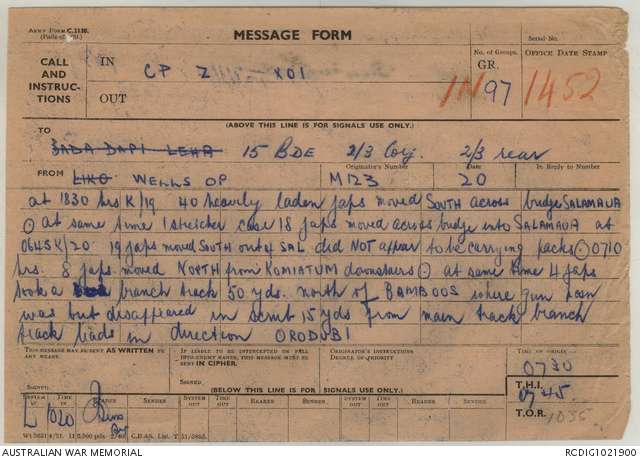 ARMY FORM C.2136.
(Pads of 100.)
MESSAGE FORM
Serial No.
CALL AND INSTRUCTIONS
IN CP Z X01
OUT
No. of Groups.
GR.
97
IN 1452
OFFICE DATE STAMP
(ABOVE THIS LINE IS FOR SIGNALS USE ONLY.)
TO
SADA DAPI LEHA 15 BDE 2/3 Coy. 2/3 rear
FROM LIKO WELLS OP
Originator's Number
M123
Date
20
In Reply to Number
at 1830 hrs K/19 40 heavily laden japs moved SOUTH across bridge SALAMAUA
⊙ at same time 1 stretcher case 18 japs moved across bridge into SALAMAUA at
0645K/20. 19 japs moved SOUTH out of SAL did NOT appear to be carrying packs ⊙ 0710
hrs. 8 japs. moved NORTH from KOMIATUM downstairs ⊙ at same time 4 japs
took a branch track 50 yds. north of BAMBOOS where gun
was but disappeared in scrub 15 yds from main track branch
track leads in direction ORODUBI
THIS MESSAGE MAY BE SENT AS WRITTEN BY ANY MEANS.
IF LIABLE TO BE INTERCEPTED OR FALL INTO ENEMY HANDS, THIS MESSAGE MUST BE SENT IN CIPHER.
ORIGINATOR'S INSTRUCTIONS
DEGREE OF PRIORITY
TIME OF ORIGIN
0730
SIGNED
SIGNED
(BELOW THIS LINE IS FOR SIGNALS USE ONLY.)
T.H.I.
0745
SYSTEM IN
TIME IN
READER
SENDER
SYSTEM OUT
TIME OUT
READER
SENDER
SYSTEM OUT
TIME OUT
READER
SENDER
T.O.R.
1035
L 1020
AUSTRALIAN WAR MEMORIAL
RCDIG1021900